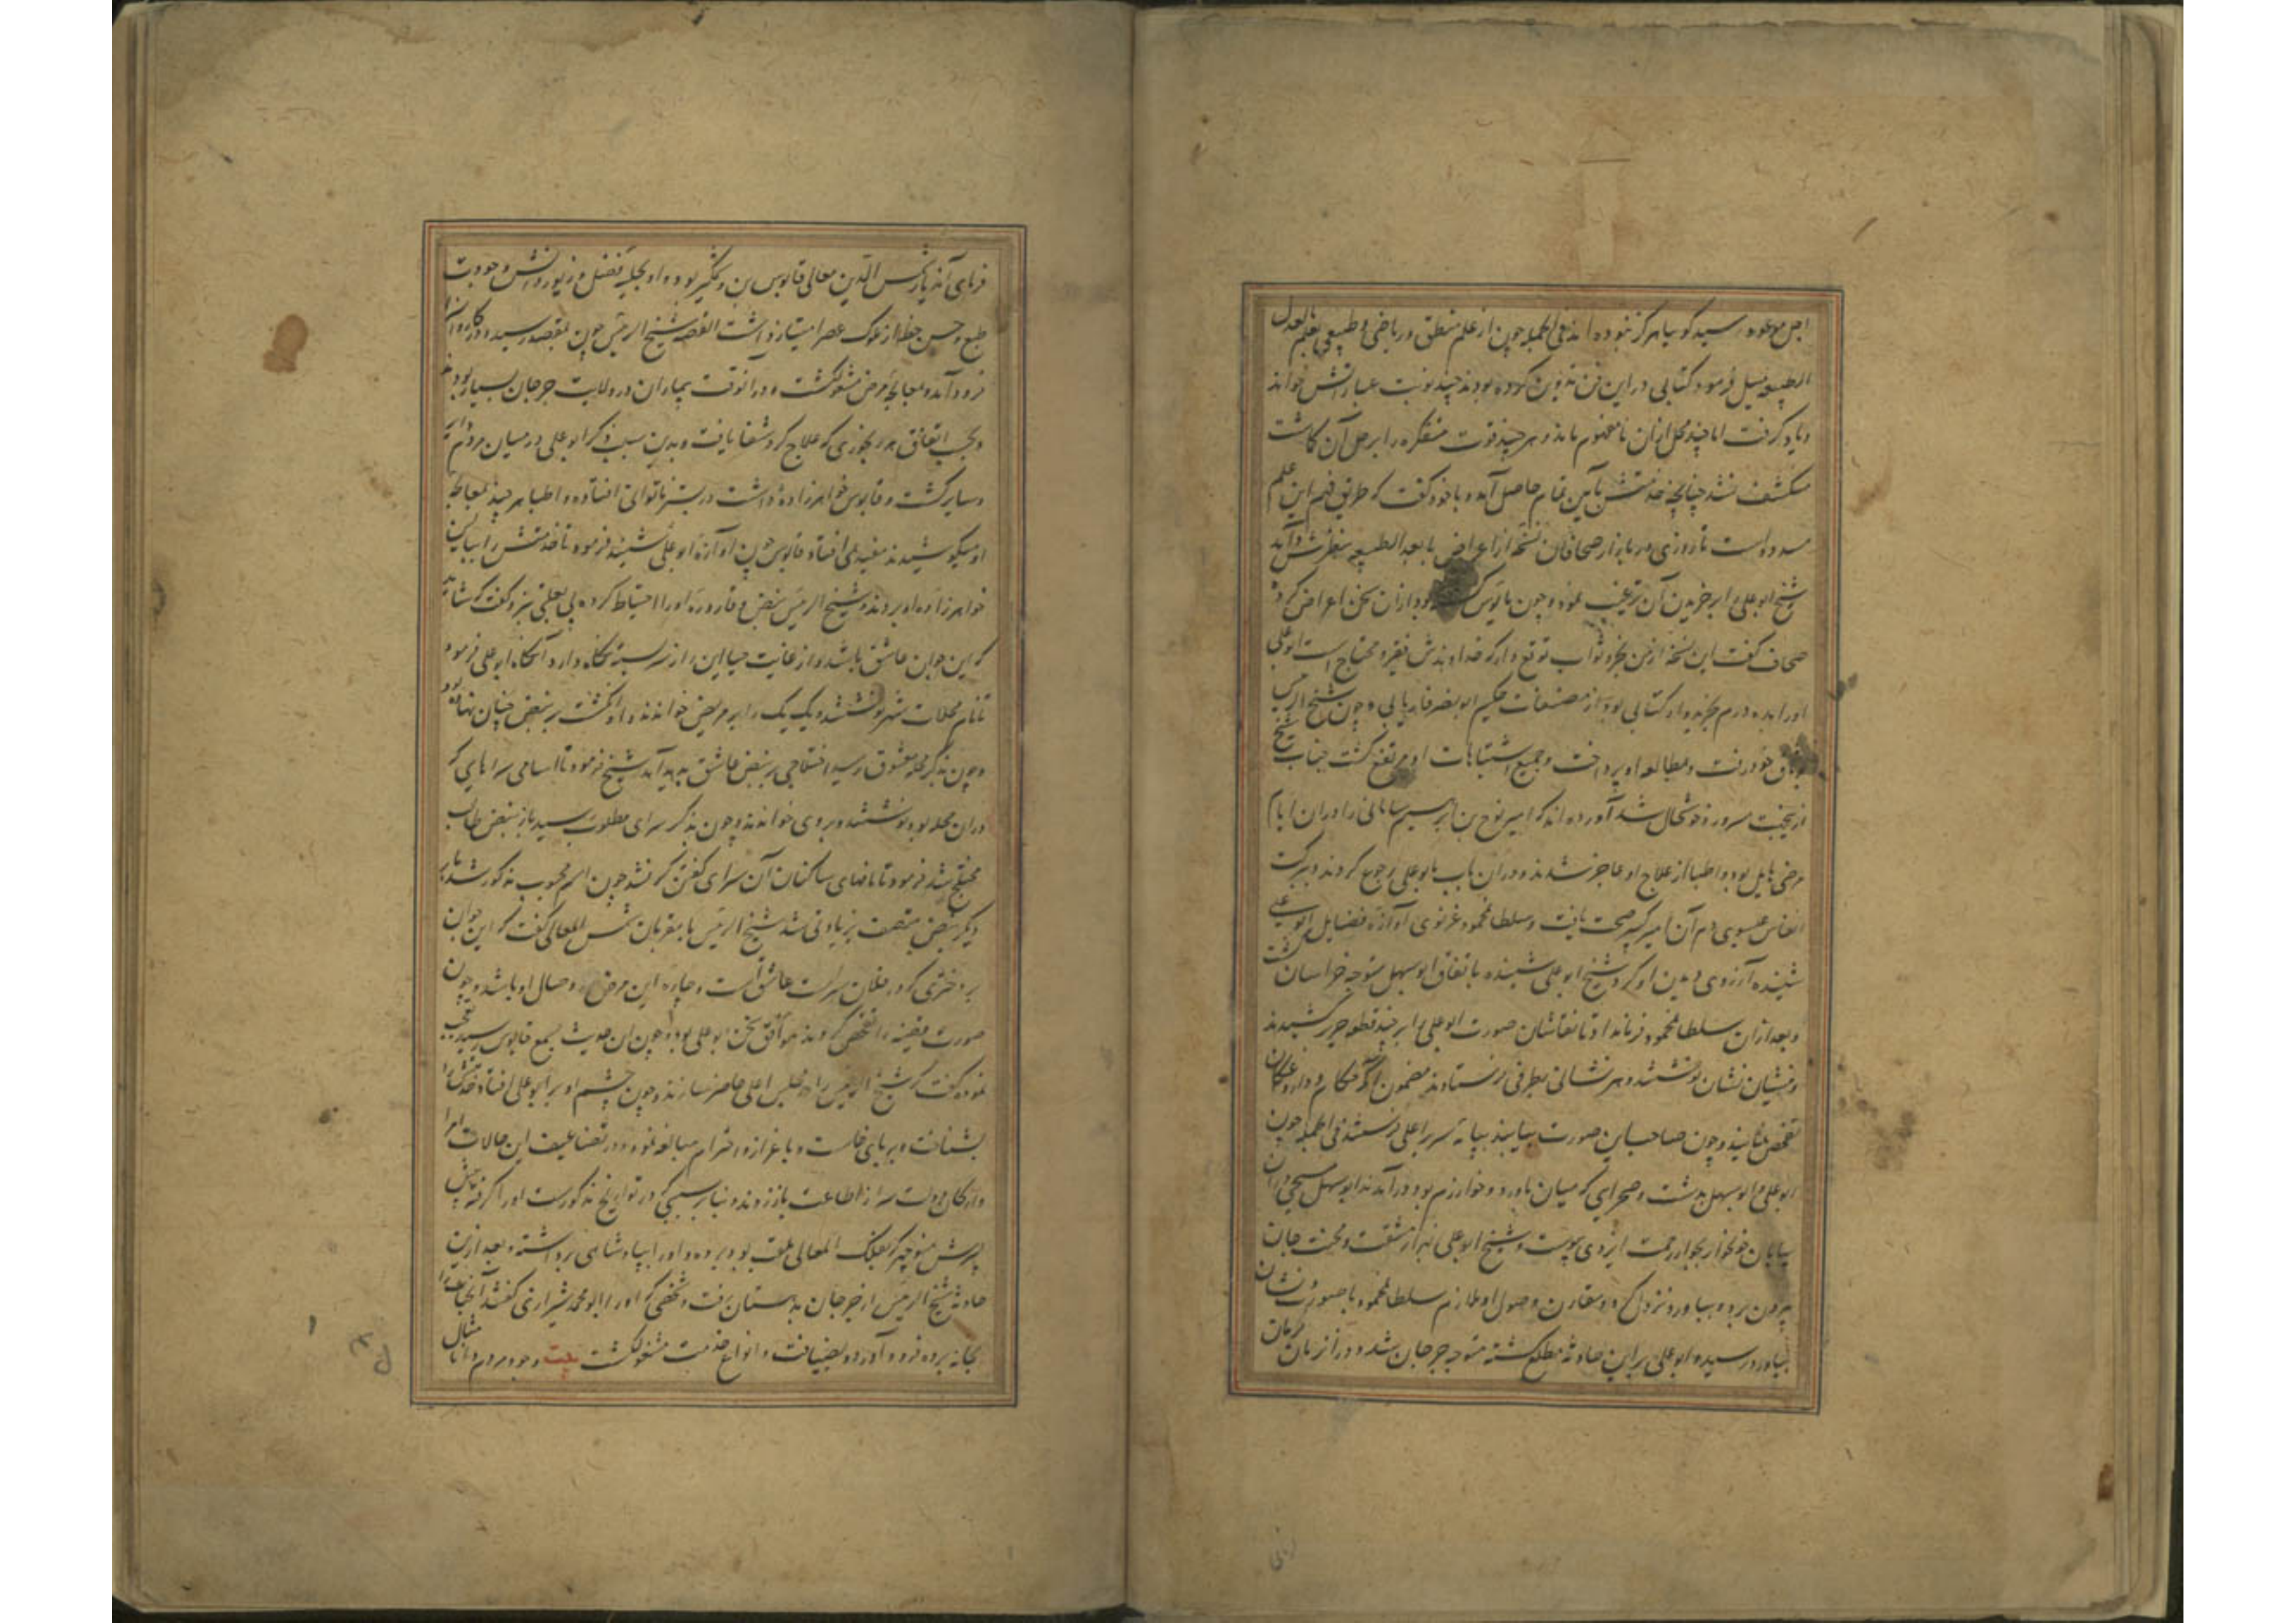 اجل موعود رسید گویا هرگز نبوده اند فی الجمله چون از علم منطق و ریاضی و طبیعی بعلم ما بعد
الطبیعه میل فرمود کتابی در این فن تدوین کرده بودند چند نوبت عباراتش خواند
و یاد گرفت اما چند محل از آن نامفهوم ماند و هر چند قوت متفکره را بر حل آن کماشت
منکشف نشد چنانچه خدمتش را یاس تمام حاصل آمد و با خود گفت که طریق فهم این علم
مسدود است تا روزی در بازار صحافان نسخه از اغراض ما بعد الطبیعه بنظرش در آمد
شیخ ابو علی را بر خریدن آن ترغیب نمود و چون مایوس گشته بود از آن سخن اعراض کرد
صحاف گفت این نسخه از من بخر و ثواب توقع دار که خداوندش فقیر و محتاج است ابو علی
اورا بده درم بخرید و از کتابی بود از مصنفات حکیم ابو نصر فاریابی و چون شیخ الرئیس
بوثاق خود رفت و بمطالعه او پرداخت و جمیع اشتباهات او مرتفع گشت جناب شیخ
ازینجهت مسرور و خوشحال شد آورده اند که امیر نوح بن سامانی را در ان ایام
مرضی هایل بود و اطبا از علاج او عاجز شدند و در ان باب بابو علی رجوع کردند و ببرکت
انفاس عیسوی دم آن امیر کبیر صحت یافت و سلطان محمود غزنوی آوازه فضایل ابو علی
شنیده آرزوی دیدن او کرد شیخ ابو علی شنیده باتفاق ابو سهل متوجه خراسان گشت
و بعد از ان سلطان محمود فرمان داد تا نقاشان صورت ابو علی را بر چند قطعه حریر کشیدند
و منشیان نشان نوشتند و هر نشانی بطرفی فرستادند مضمون آنکه حکام و داروغکان
تفحص نمایند و چون صاحب این صورت بیابند بپایه سریر اعلی فرستند فی الجمله چون
ابو علی و ابو سهل بدشت و صحرایی که میان باورد و خوارزم بود در آمدند ابو سهل مسیحی در ان
بیابان خونخوار بجوار رحمت ایزدی پیوست و شیخ ابو علی بهزار مشقت و محنت جان
بیرون برده بباورد نزول کرد و مقارن وصول او ملازم سلطان محمود با صورت و نشان
بباورد رسیده ابو علی بر این حادثه مطلع گشته متوجه جرجان شد و در آنزمان
فرمای آندیار شمس الدین معالی قابوس بن وشمگیر بود و او بحلیه فضل و زیور دانش و جودت
طبع و حسن خط از ملوک عصر امتیاز داشت القصه شیخ الرئیس چون بمقصد رسید در کاروانسرا
فرود آمده بمعالجه مرض مشغول گشت و در آنوقت بیماران در ولایت جرجان بسیار بودند
و بحسب اتفاق هر رنجوری که علاج کرد شفا یافت و بدین سبب ذکر ابو علی در میان مردم
و سایر گشت و قابوس خواهرزاده داشت در بستر ناتوانی افتاده و اطبا هر چند بمعالجه
او میکوشیدند مفید نمی افتاد قابوس چون آوازه ابو علی شنید فرمود تا خدمتش را ببالین
خواهرزاده او بردند و شیخ الرئیس نبض و قاروره اورا احتیاط کرده و گفت که شاید
که این جوان عاشق باشد و از غایت حیا این راز سر بسته نگاه دارد آنگاه ابو علی فرمود
تا نام محلات شهر نوشتند و یک یک را بر مریض خواندند و او انگشت بر نبض جنبان نهاده بود
و چون بذکر محله معشوق رسید اختلاجی در نبض عاشق پدید آمد شیخ فرمود تا اسامی سراهای که
در ان محله بود نوشتند و بر وی خواندند و چون بذکر سرای مطلوب رسید باز نبض طالب
مختلج شد فرمود تا نامهای ساکنان آن سرای گفتن گرفتند چون اسم محبوب مذکور شد بار
دیگر نبض متصف بزیادتی شد شیخ الرئیس با مقربان شمس المعالی گفت که این جوان
بر دختری که در فلان سراست عاشق است و چاره این مرض وصال او باشد و چون
صورت قضیه را تفحص کردند موافق سخن ابو علی بود و چون ان حدیث بسمع قابوس رسید تعجب
نموده گفت که شیخ الرئیس را در مجلس اعلی حاضر سازند و چون چشم او بر ابو علی افتاد خدمتش را
بشناخت و بر پای خاست و باعزاز و احترام مبالغه نمود و در تضاعیف این حالات امرا
و ارکان دولت سر از اطاعت باز زدند و بنا بر سببی که در تواریخ مذکورست اورا گرفته
پسرش منوچهر که بفلک المعالی ملقب بود برده و اورا بپادشاهی برداشته و بعد از ین
حادثه شیخ الرئیس از جرجان بدهستان رفت و شخصی که اورا ابو محمد شیرازی گفتند آنجناب را
بخانه برده فرود آورد و بضیافت و انواع خدمت مشغول گشت بیت وجود مردم دانا مثال